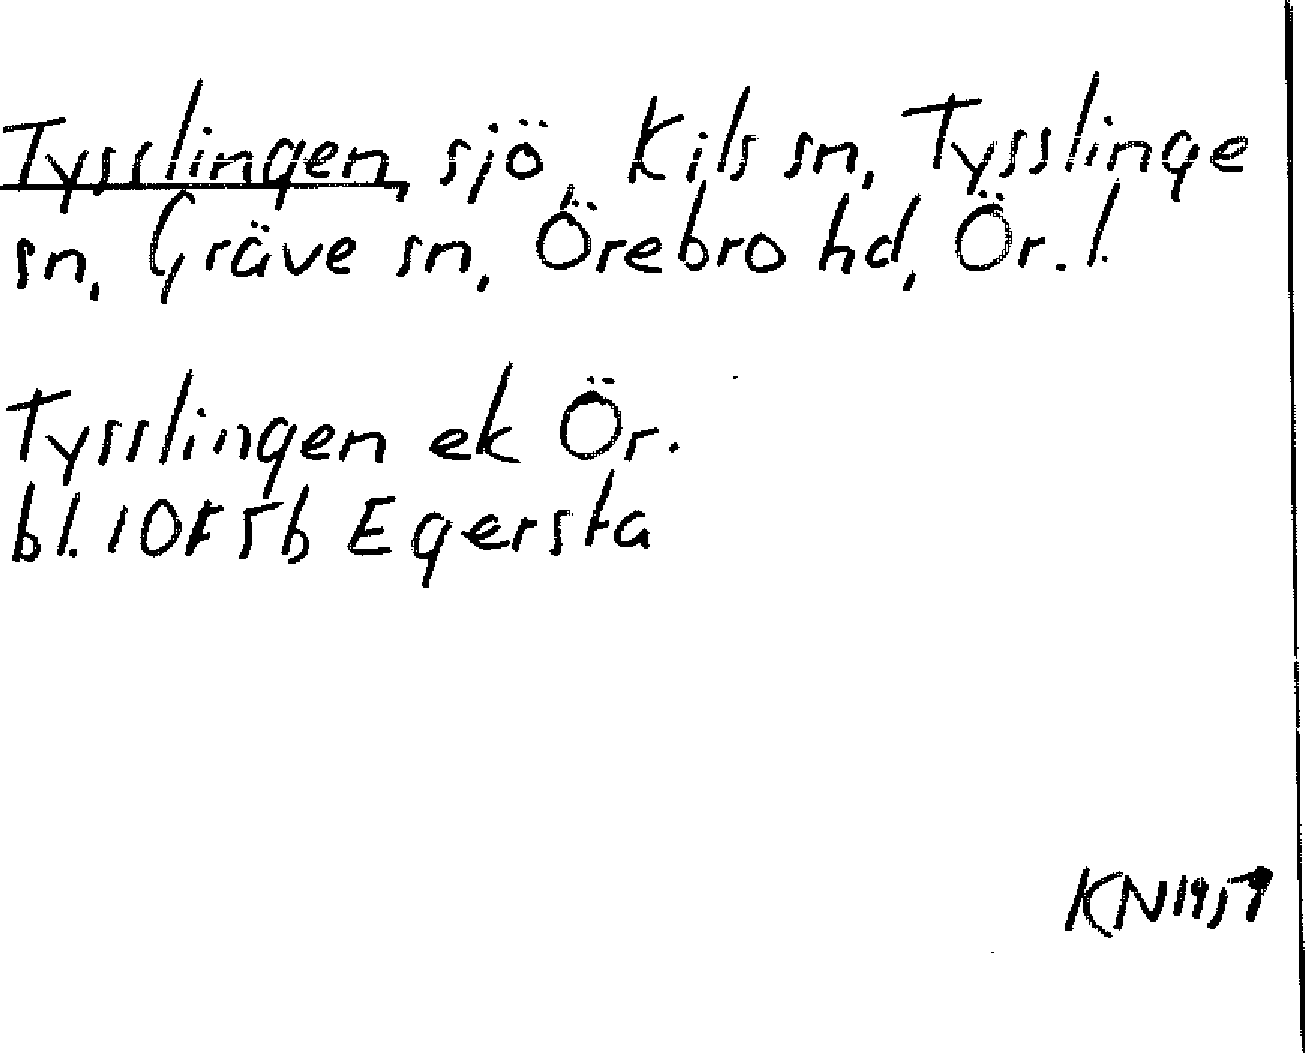 Tysslingen, sjö, Kils sn, Tysslinge
sn, Gräve sn, Örebro hd, Ör. l.
Tysslingen ek Ör.
bl. 10F 5b Egersta
KN 1959